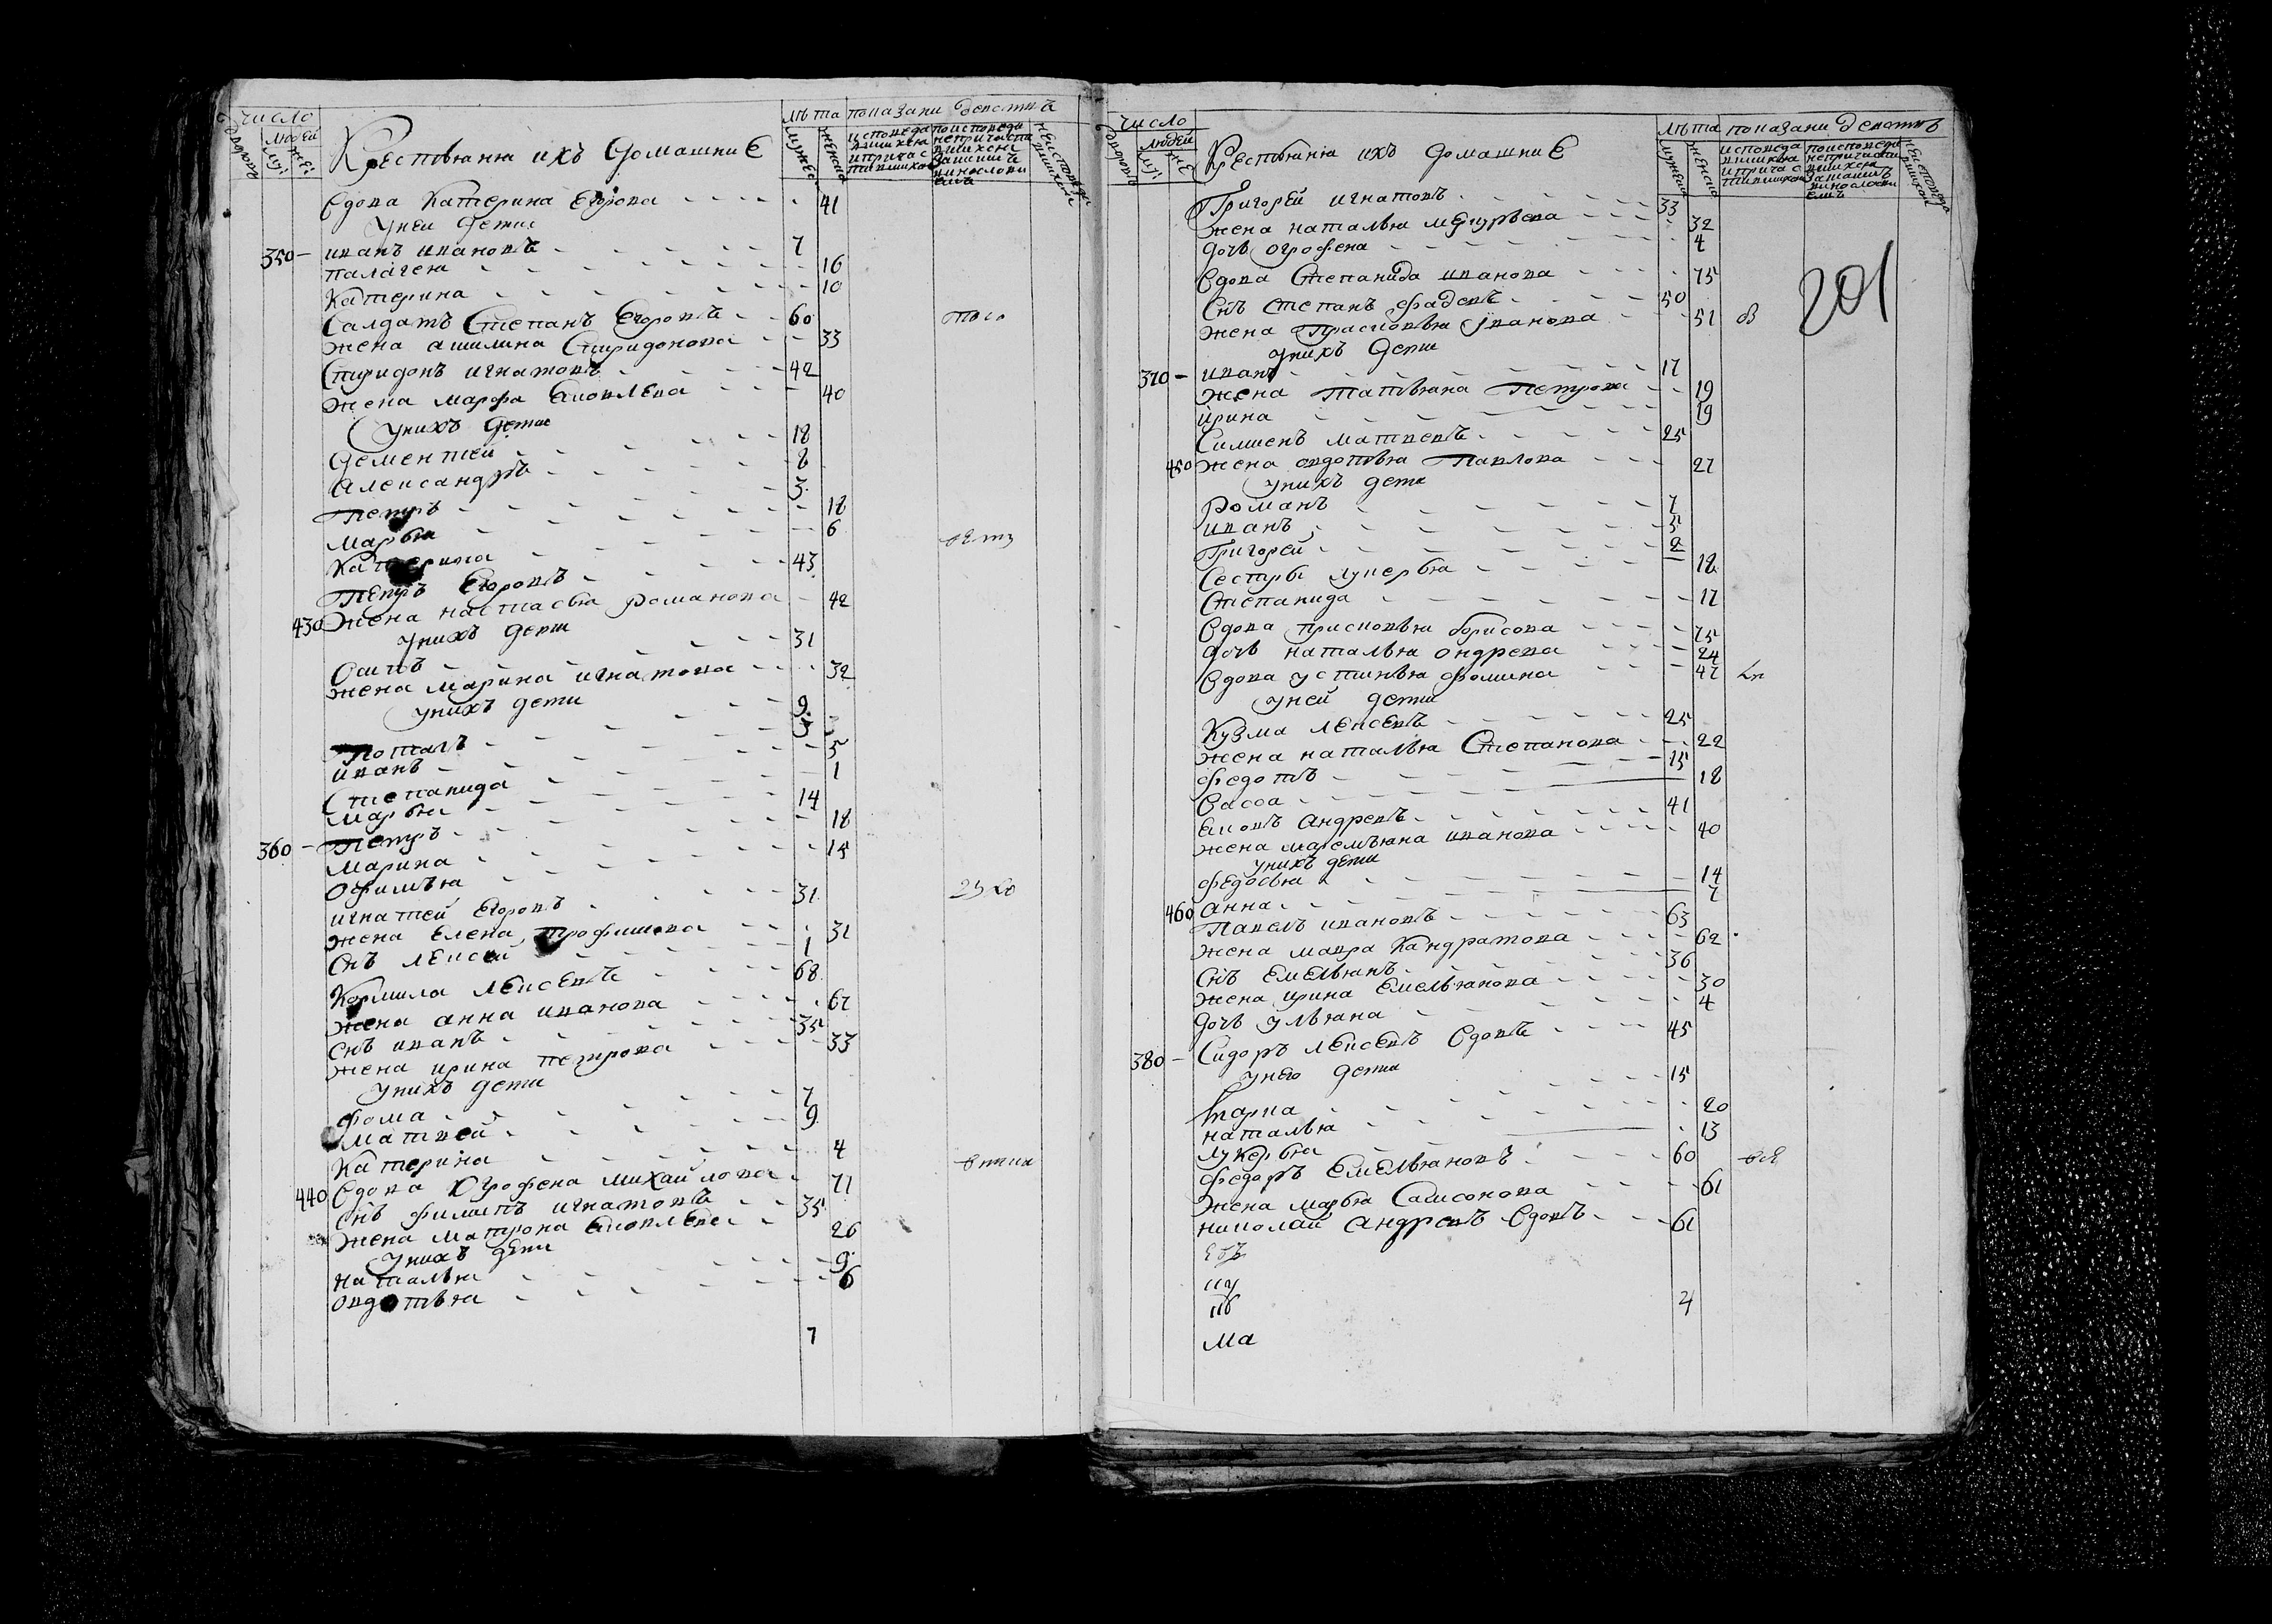 число
людей
лѣта показани действъ
Крестьяня ихъ Домашние
Вдова Катерина Егорова 41
Уней дети
350 иванъ ивановъ 7
палагея 16
Катерина 10
Салдатъ Степанъ Егоровъ 60
жена акилина Спиридонова 33
Спиридонъ игнатовъ 42
жена марфа Яковлева 40
Унихъ дети
Дементей 18
Александръ 8
Петръ 3
марья 18
Катерина 6
Петръ Егоровъ 43
430 жена настасья романова 42
Унихъ дети
Осипъ 31
жена марина игнатова 32
Унихъ дети
Потапъ 9
иванъ 3
Степанида 5
марья 1
360 Петръ 14
марина 18
Офимья 15
игнатей Егоровъ 31
жена Елена Трофимова 31
Снъ лексей 1
Кормила лексевъ 68
жена анна иванова 67
Снъ иванъ 35
жена ирина петрова 33
Унихъ дети
фома 7
матвей 9
Катерина 4
440 Вдова Огрофена михайлова 71
Снъ филипъ игнатовъ 35
жена матрона Яковлева 26
Унихъ дети
наталья 9
овдотья 6
7
число
людей
лѣта показани действъ
Крестьяня ихъ домашние
Григорей игнатовъ 33
жена наталья 32
дочь огрофена 4
Вдова Степанида иванова 75
Снъ Степанъ фадевъ 50
жена Прасковья иванова 51
201
Унихъ дети
370 иванъ 17
жена Татьяна Петрова 19
ирина 19
Симиенъ матвевъ 25
450 жена овдотья Павлова 27
Унихъ дети
Романъ 7
иванъ 5
Григорей 2
Сестры лукерья 18
Степанида 17
Вдова присковья борисова 75
дочь наталья ондрева 24
Вдова устинья фомина 47
Уней дети
Кузма лексевъ 25
жена наталья Степанова 22
федотъ 15
Васса 18
Яковъ Андревъ 41
жена маремьяна иванова 40
Унихъ дети
федосья 14
460 анна 7
Павелъ ивановъ 63
жена мавра Кандратова 62
Снъ Емельянъ 36
жена ирина Емельянова 30
дочь ульяна 4
380 Сидоръ лексевъ Вдовъ 45
Унего дети
15
наталья 20
лукерья 13
федоръ Емельяновъ 60
жена марья Самсонова 61
николай Андревъ Вдовъ 61
ма